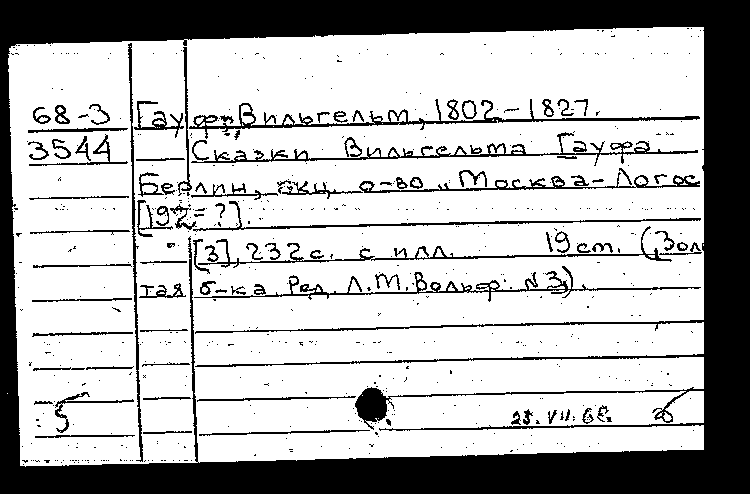 68-3 Гауф, Вильгельм, 1802-1827.
3544 Сказки Вильгельма Гауфа.
Берлин, акц. о-во „Москва-Логос"
[192=?].
[3], 232 с. с илл. 19 cm. (Золо
тая б-ка. Ред. Л.М. Вольф. N 3).
5 25.VII.68.